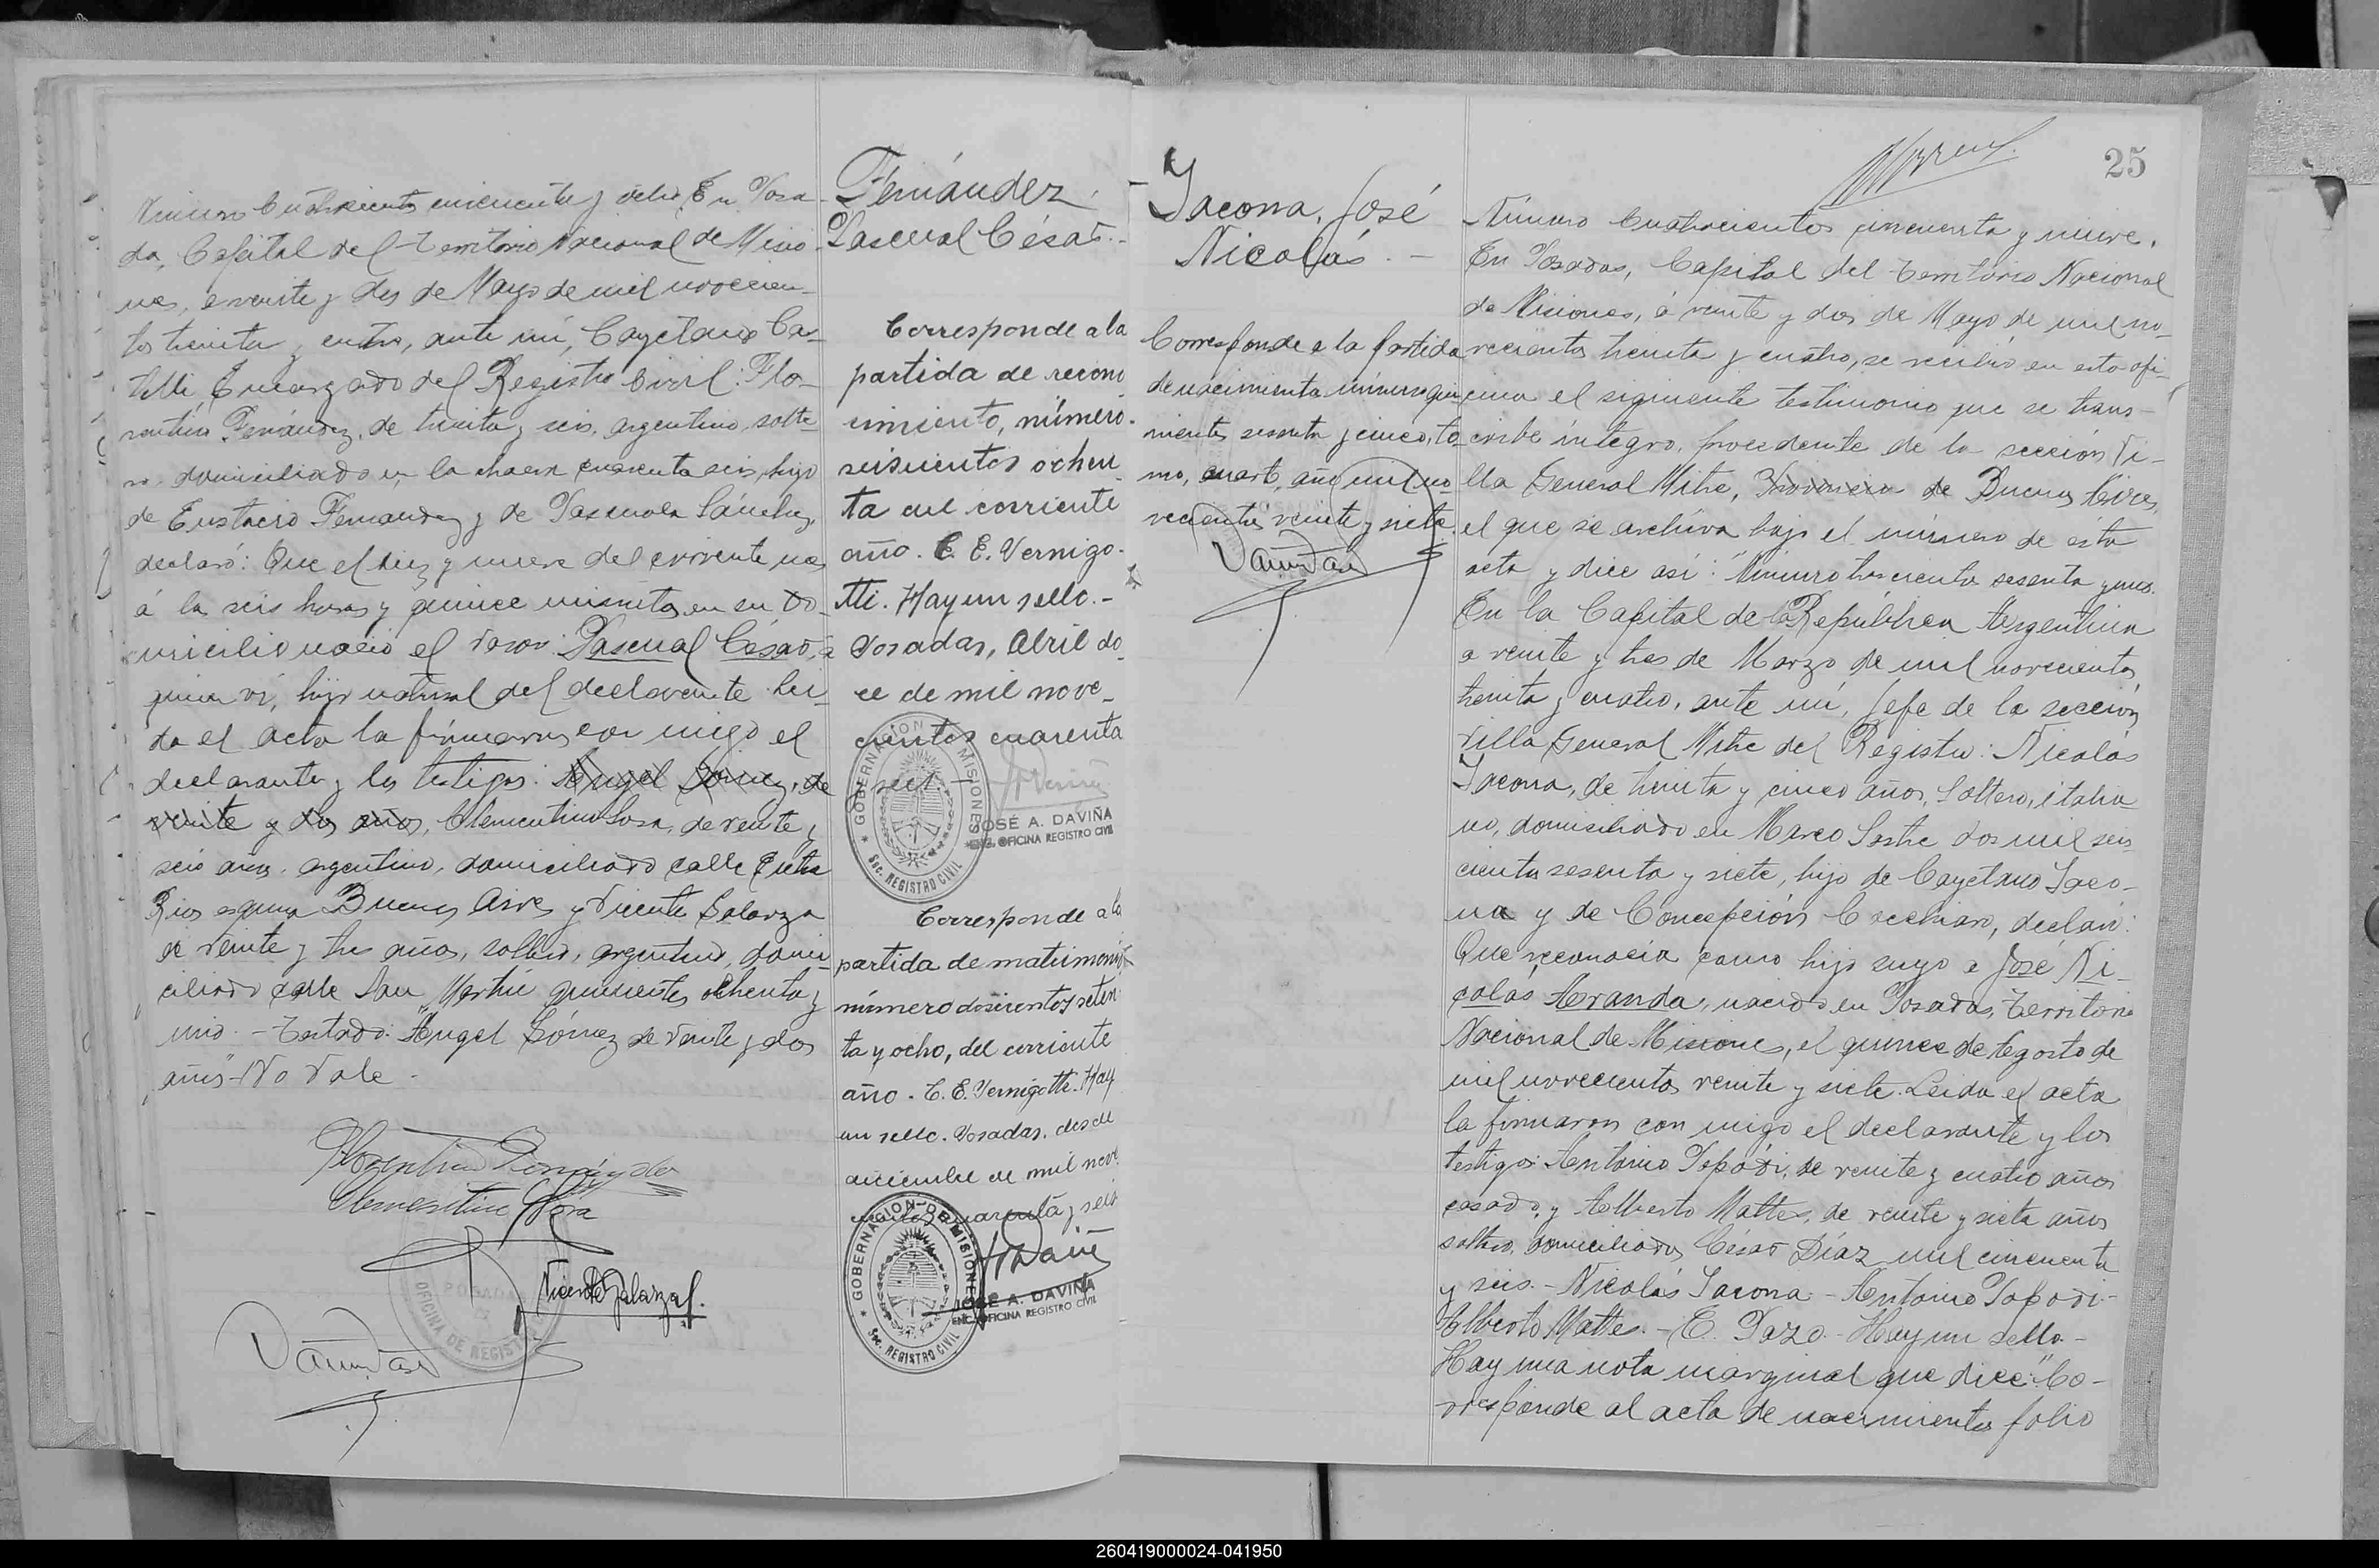 Número Cuatrocientos cincuenta y ocho. En Posa-
da, Capital del Territorio Nacional de Misio-
nes, a veinte y dos de Mayo de mil novecien-
tos treinta y cuatro, ante mí, Cayetano Ca-
telli, Encargado del Registro Civil: Flo-
rentino Fernández, de treinta y seis, argentino, solte-
ro, domiciliado en la chacra cuarenta seis, hijo
de Eustacio Fernandez y de Pascuala Sánchez,
declaró: Que el diez y nueve del corriente mes
á la seis horas y quince minutos en su do-
micilio nació el varon: Pascual César, a
quien ví, hijo natural del declarante. Lei-
da el acta la firmaron con migo el
declarante y los testigos: Angel Gómez, de
veinte y dos años, Clementino Sosa, de veinte y
seis años, argentino, domiciliado calle Entre
Rios esquina Buenos Aires y Vicente Galarza
de veinte y tres años, soltero, argentino, domi-
ciliado calle San Martín quinientos ochenta y
uno. - Testado: "Angel Gómez de veinte y dos
años" - No Vale.
Florentino Fernández
Clementino Sosa
Vicente Galarza
POSADAS
OFICINA DE REGISTRO
Fernández
Pascual César.-
Corresponde a la
partida de recono
cimiento, número
seiscientos ochen
ta del corriente
año. C. E. Vernigo-
tti. Hay un sello.-
Posadas, Abril do-
ce de mil nove-
cientos cuarenta
y seis
GOBERNACION DE MISIONES
Sec. REGISTRO CIVIL
JOSÉ A. DAVIÑA
ENC. OFICINA REGISTRO CIVIL
Corresponde a la
partida de matrimonio
número doscientos seten
ta y ocho, del corriente
año. C. E. Vernigotti. Hay
un sello. Posadas, dos de
diciembre de mil nove
cientos cuarenta y seis
GOBERNACION DE MISIONES
Sec. REGISTRO CIVIL
JOSÉ A. DAVIÑA
ENC. OFICINA REGISTRO CIVIL
Iacona, José
Nicolás. -
Corresponde a la partida
de nacimiento número qui
nientos sesenta y cinco, to
mo, cuarto, año mil no
vecientos veinte y siete.
25
Número Cuatrocientos cincuenta y nueve.
En Posadas, Capital del Territorio Nacional
de Misiones, á veinte y dos de Mayo de mil no-
vecientos treinta y cuatro, se recibió en esta ofi-
cina el siguiente testimonio que se trans-
cribe íntegro, procedente de la sección Vi-
lla General Mitre, Provincia de Buenos Aires,
el que se archiva bajo el número de esta
acta y dice así: "Número trescientos sesenta y uno.
En la Capital de la República Argentina
a veinte y tres de Marzo de mil novecientos
treinta y cuatro, ante mí, Jefe de la sección
Villa General Mitre del Registro: Nicolás
Iacona, de treinta y cinco años, soltero, italia
no, domiciliado en Marco Sastre dos mil seis
cientos sesenta y siete, hijo de Cayetano Iaco-
na y de Concepción Cacchiaro, declaró:
Que reconocía como hijo suyo a José Ni-
colás Aranda, nacido en Posadas, Territorio
Nacional de Misiones, el quince de Agosto de
mil novecientos veinte y siete. Leida el acta
la firmaron con migo el declarante y los
testigos: Antonio Papodi, de veinte y cuatro años
casado, y Alberto Mattes, de veinte y siete años
soltero, domiciliados César Díaz mil cincuenta
y seis. - Nicolás Iacona. - Antonio Papodi -
Alberto Mattes. - E. Pazo. - Hay un sello. -
Hay una nota marginal que dice: "Co-
rresponde al acta de nacimientos folio
260419000024-041950